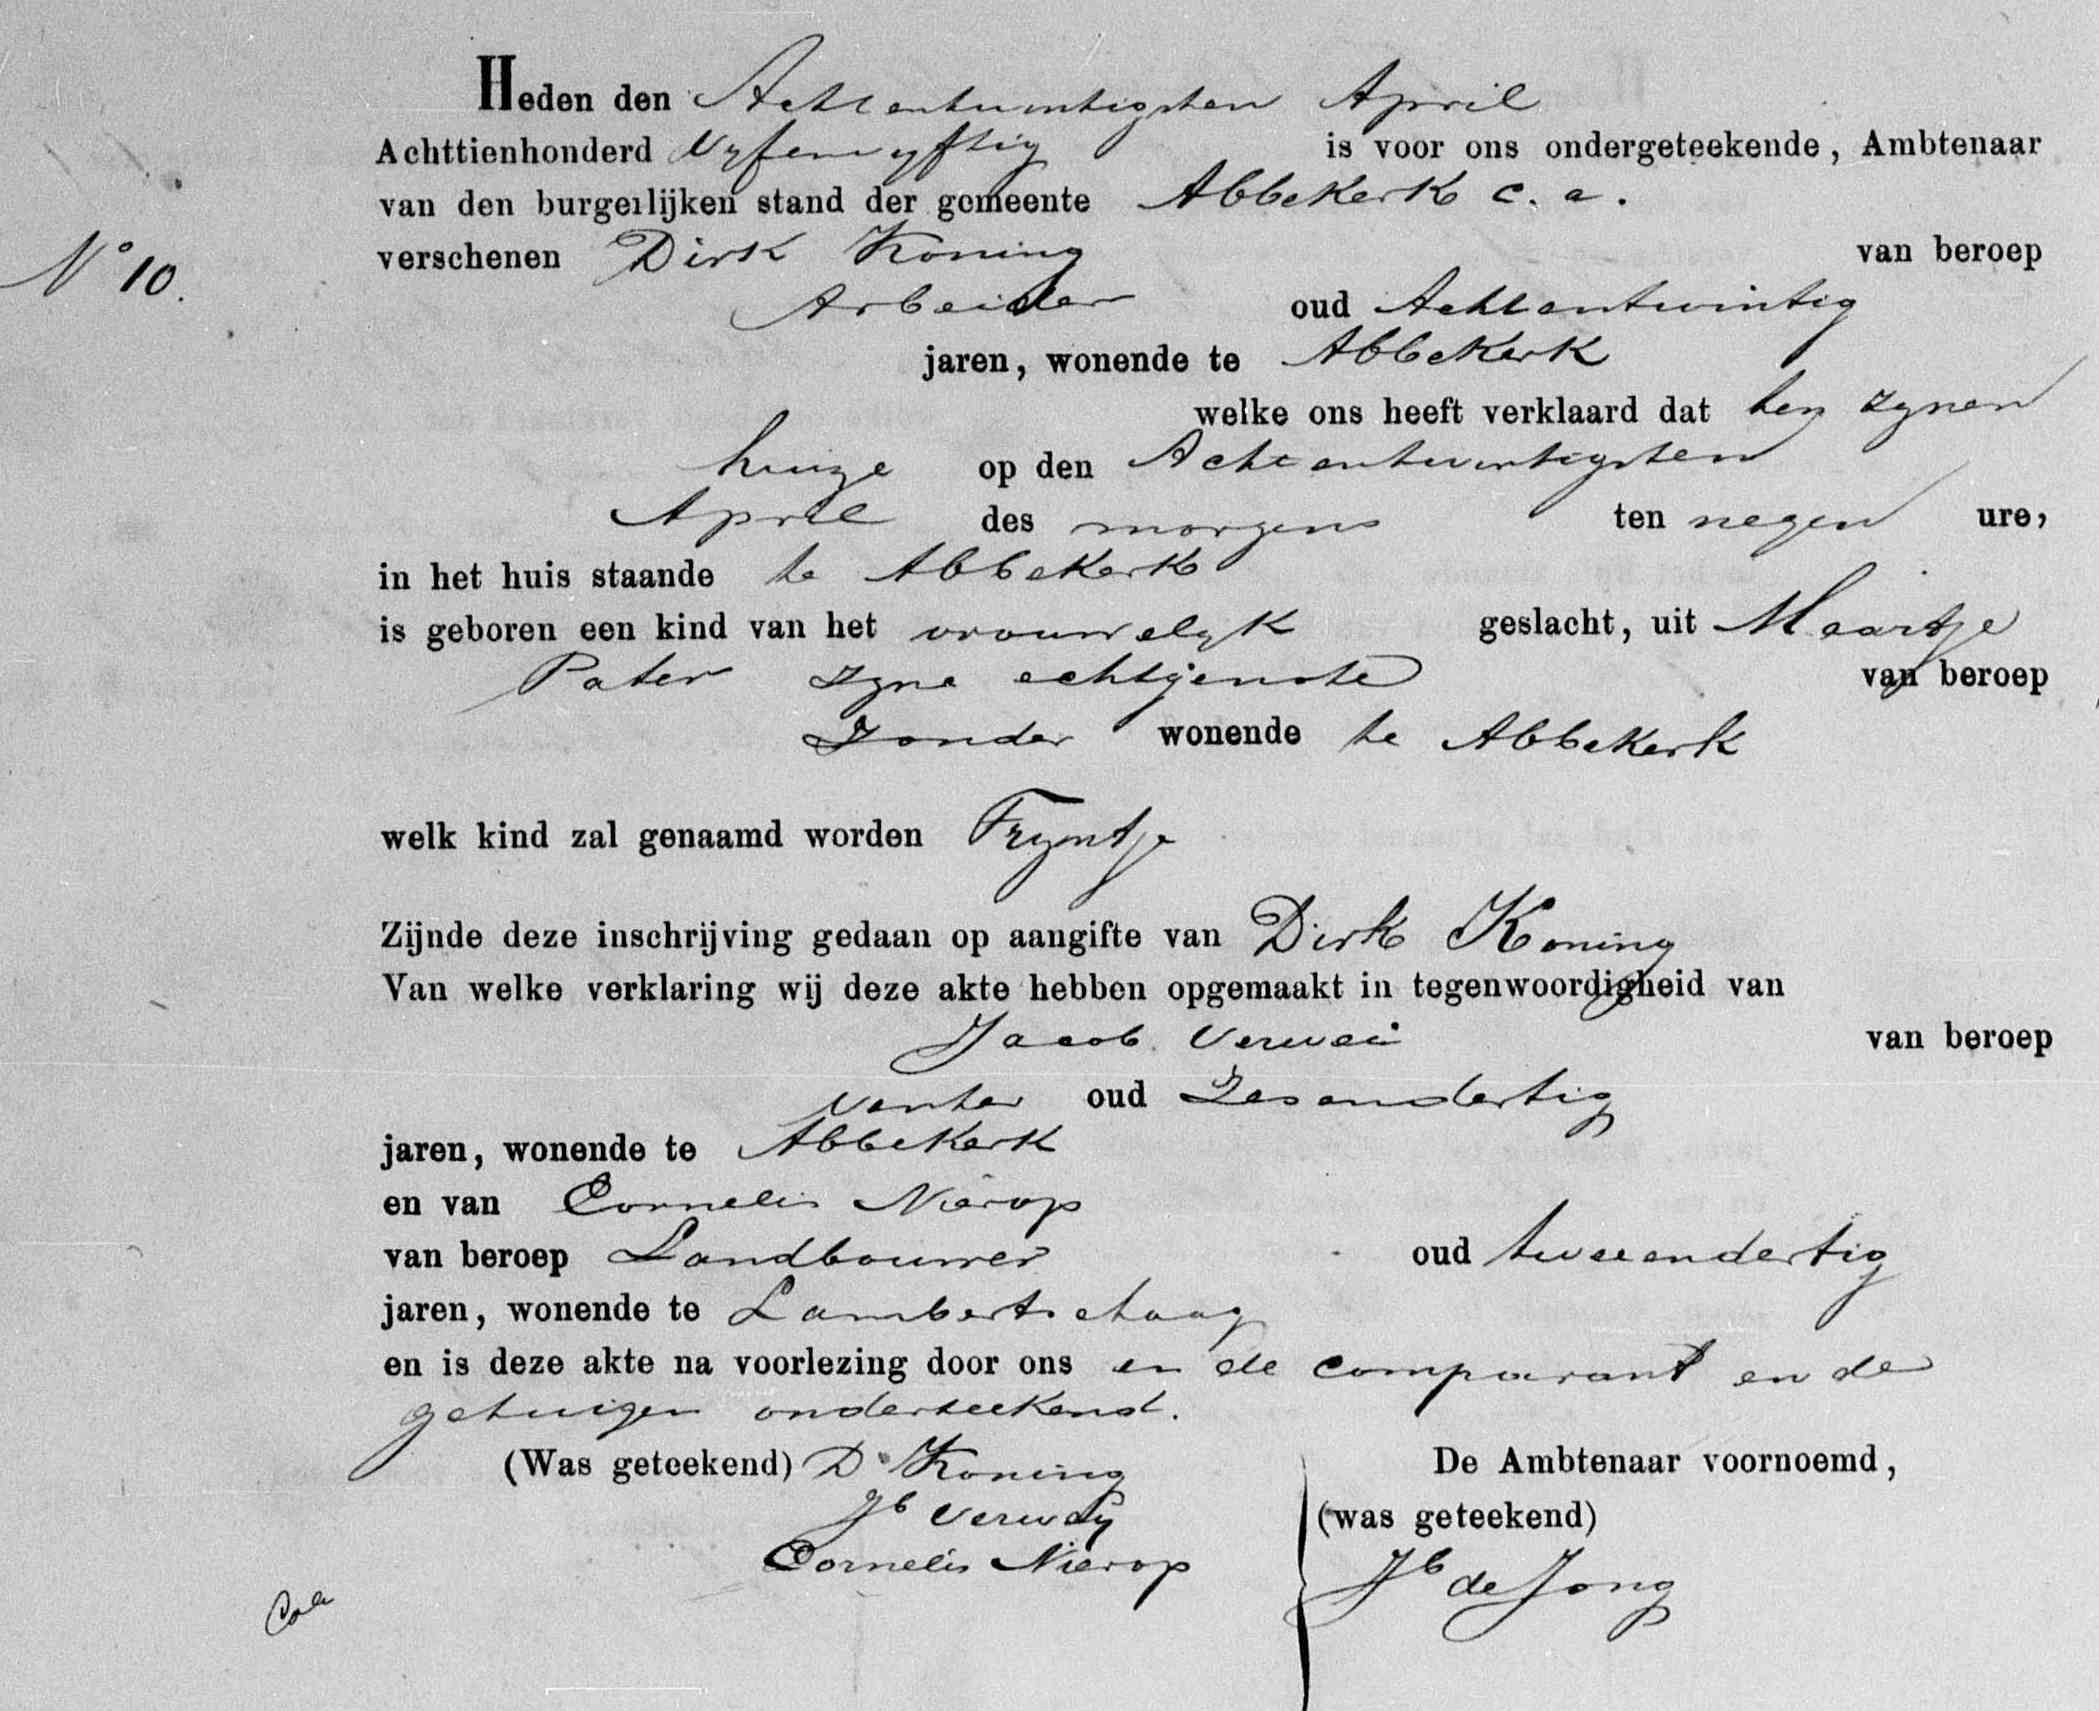 Heden den Achtentwintigsten April
Achttienhonderd Vyfenvyftig is voor ons ondergeteekende, Ambtenaar
van den burgerlijken stand der gemeente Abbekerk c. a.
verschenen Dirk Koning van beroep
N° 10.
Arbeider oud Achtentwintig
jaren, wonende te Abbekerk
welke ons heeft verklaard dat ten zynen
huize op den Achtentwintigsten
April des morgens ten negen ure,
in het huis staande te Abbekerk
is geboren een kind van het vrouwelyk geslacht, uit Maartje
Pater zyne echtgenote van beroep
Zonder wonende te Abbekerk
welk kind zal genaamd worden Tryntje
Zijnde deze inschrijving gedaan op aangifte van Dirk Koning
Van welke verklaring wij deze akte hebben opgemaakt in tegenwoordigheid van
Jacob Verwei van beroep
Venter oud Zesendertig
jaren, wonende te Abbekerk
en van Cornelis Nierop
van beroep Landbouwer oud tweeendertig
jaren, wonende te Lambertschaag
en is deze akte na voorlezing door ons en de comparant en de
getuigen onderteekend.
(Was geteekend) D Koning De Ambtenaar voornoemd,
Jb Verwey (was geteekend)
Cornelis Nierop Jb de Jong